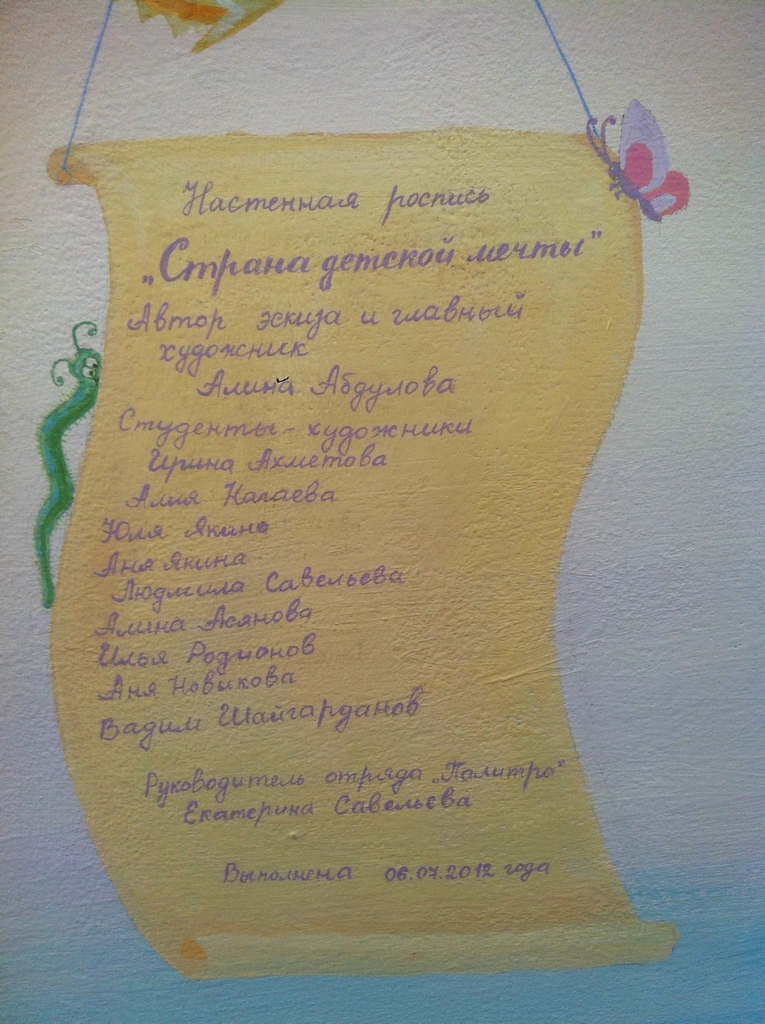 Настенная роспись
„Страна детской мечты"
Автор эскиза и главный
художник
Алина Абдулова
Студенты-художники
Ирина Ахметова
Алия Нагаева
Юля Якина
Аня Якина
Людмила Савельева
Алина Асянова
Илья Родионов
Аня Новикова
Вадим Шайгарданов
Руководитель отряда „Палитра"
Екатерина Савельева
Выполнена 06.07.2012 года